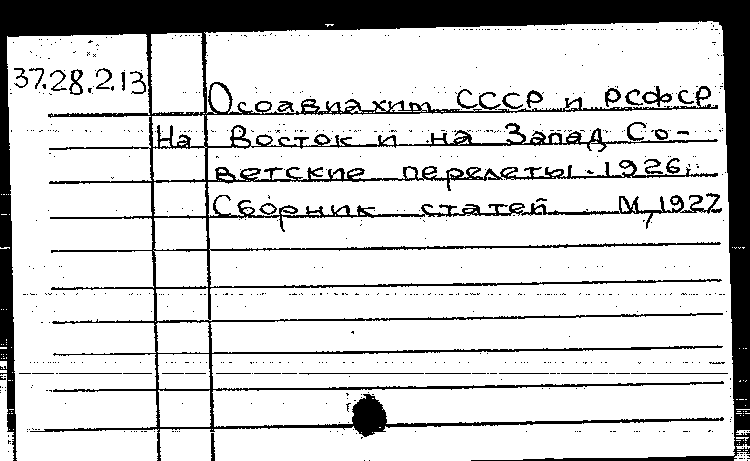 37.28.2.13
Осоавиахим СССР и РСФСР
На Восток и на Запад Со-
ветские перелеты. 1926.
Сборник статей М, 1927